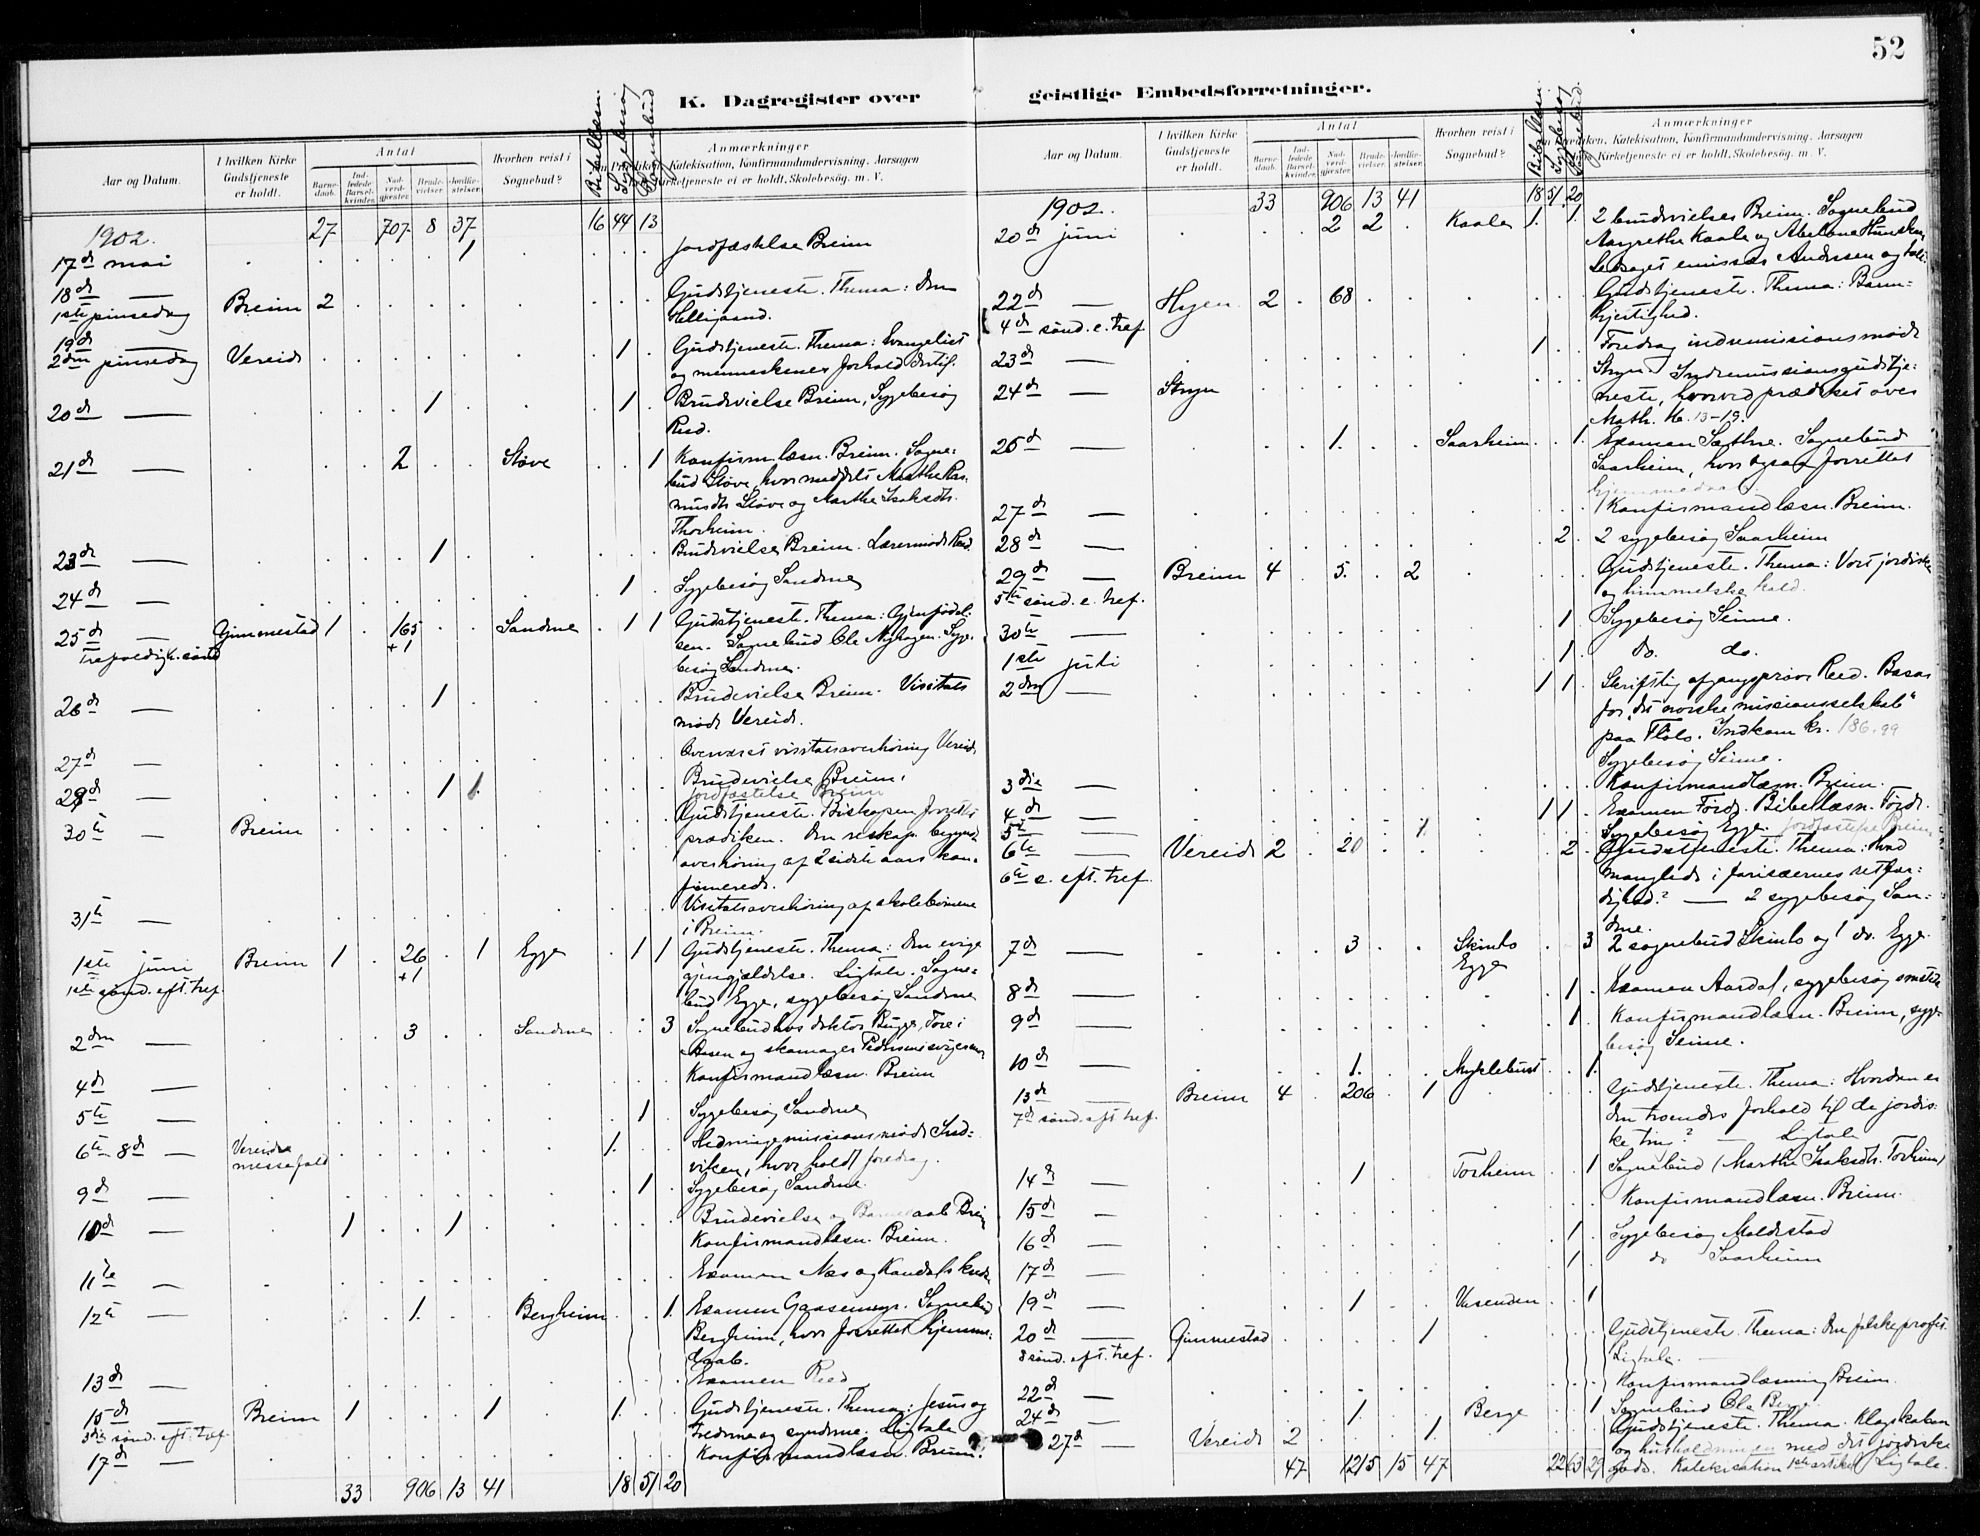 52
K. Dagregister over geistlige Embedsforretninger.
Aar og Datum.
I hvilken Kirke Gudstjeneste er holdt.
Antal
Barnedaab.
Indledede Barselkvinder.
Nadverdgjæster.
Brudevielser.
Jordfæstelser.
Hvorhen reist i Sognebud?
Bibellæsn.
Sygebesøg
Sognebud
Anmærkninger
Katekisation, Konfirmandundervisning. Aarsagen
Kirketjeneste ei er holdt, Skolebesög. m. V.
1902. 27 707 8 37 16 44 13
17de mai 1 Jordfæstelse Breim
18de — 1ste pinsedag Breim 2 Gudstjeneste. Thema: Den
Helligaand.
19de — 2den pinsedag Vereide 1 Gudstjeneste. Thema: Evangeliet
og menneskenes forhold dertil.
20de — 1 1 Brudevielse Breim, Sygebesøg
Reed.
21de — 2 Støve 1 Konfirm.læsn. Breim. Sogne-
bud Støve, hvor meddelt Marthe Ras-
musdtr Støve og Marthe Isaksdtr.
Thorheim.
23de — 1 Brudevielse Breim. Lærermøde Reed
24de — 1 Sygebesøg Sandene
25de — Trefoldigh.sønd Gimmestad 1 165 +1 Sandene 1 1 Gudstjeneste. Thema: Gjenfødel-
sen. Sognebud Ole Nyhagen. Syge-
besøg Sandene.
26de — 1 Brudevielse Breim. Visitats
møde Vereide.
27de — Overværet visitatsoverhøring Vereide
28de — 1 1 Brudevielse Breim.
Jordfæstelse Breim
30te — Breim Gudstjeneste. Biskopen forrettet
prædiken.
overhøring af 2 sidste aars kon-
firmerede.
31te — Visitatsoverhøring af skolebørnene
i Breim.
1ste juni 1ste sønd. eft. tref. Breim 1 26 +1 1 Egge 1 1 Gudstjeneste. Thema: Den evige
gjengjældelse. Ligtale. Sogne-
bud Egge, sygebesøg Sandene
2den — 3 Sandene 3 Sognebud hos doktor Bugge, Tore i
Aasen og skomager
4de — Konfirmandlæsn. Breim
5te — 1 Sygebesøg Sandene
6te–8de — Vereide messefald 1 Hedningemissionsmøde Ind-
viken, hvor holdt foredrag.
9de — 1 Sygebesøg Sandene.
10de — 1 1 Brudevielse og Barnedaab Breim
Konfirmandlæsn. Breim.
11te — Examen Næs og Kandals kreds
12te — 1 Bergheim 1 Examen Gaasemyr. Sognebud
Bergheim, hvor forrettet hjemme-
daab.
13de — Examen Reed
15de — 3die sønd. eft. tref. Breim 1 1 1 Gudstjeneste. Thema: Jesus og
Fredens og synderne. Ligtale
17de — Konfirmandlæsn. Breim.
33 906 13 41 18 51 20
Aar og Datum.
I hvilken Kirke Gudstjeneste er holdt.
Antal
Barnedaab.
Indledede Barselkvinder.
Nadverdgjæster.
Brudevielser.
Jordfæstelser.
Hvorhen reist i Sognebud?
Bibellæsn.
Sygebesøg
Sognebud
Anmærkninger
Prædiken, Katekisation, Konfirmandundervisning. Aarsagen
Kirketjeneste ei er holdt, Skolebesög. m. V.
1902. 33 906 13 41 18 51 20
20de juni 2 2 Kaale 1 1 2 brudevielser Breim. Sognebud
Margrethe Kaale og Abelone Hunsken
Ledsaget emissær Andersen
22de — 4de sønd. e. tref. Hyen 2 68 Gudstjeneste. Thema: Barm-
hjertighed.
23de — 1 Foredrag indremissionsmøde
24de — Stryn Stryn Indremissionsgudstje-
neste, hvorved prædiket over
Math. 16. 13–19.
26de — 1 Saarheim 1 Examen Sæthre. Sognebud
Saarheim, hvor ogsaa forrettet
hjemmedaab.
27de — Konfirmandlæsn. Breim.
28de — 2 2 sygebesøg Saarheim
29de — 5te sønd. e. tref. Breim 4 5 2 Gudstjeneste. Thema: Vort jordiske
og himmelske kald.
30te — 1 Sygebesøg Seime.
1ste juli 1 do. do.
2den — 1 1 Skriftlig afgangsprøve Reed. Basar
for „det norske missionsselskab"
paa Fløto. Indkom kr. 186.99
Sygebesøg Seime.
3die — Konfirmandlæsn. Breim.
4de — 1 1 Examen Førde. Bibellæsn. Førde.
5te — 1 Sygebesøg Egge. Jordfæstelse Breim
6te — 6te s. eft. tref. Vereide 2 20 2 Gudstjeneste. Thema: Hvad
manglede i farisæernes retfær-
dighed? — 2 sygebesøg San-
dene.
7de — 3 Skinlo Egge 3 2 sognebud Skinlo og 1 do. Egge.
8de — 1 Examen Aardal, sygebesøg
9de — 1 Konfirmandlæsn. Breim, syge-
besøg Seime.
10de — 1 Myklebust 1
13de — 7de sønd. eft. tref. Breim 4 206 1 Gudstjeneste. Thema: Hvordan er
den troendes forhold til de jordis-
ke ting? — Ligtale
14de — 1 Torheim 1 Sognebud (Marthe Isaksdtr. Torheim)
15de — Konfirmandlæsn. Breim.
16de — 1 Sygebesøg Moldestad
17de — 1 do Saarheim
19de — 1 Vasenden 1
20de — 8 sønd. eft. tref. Gimmestad 1 Gudstjeneste. Thema: Den falske profet.
Ligtale. —
22de — Konfirmandlæsning Breim.
24de — 1 Berge 1 Sognebud Ola Berge
27de — Vereide 2 1 Gudstjeneste. Thema. Klogskaben
og husholdningen med det jordiske
gods. Katekisation 1ste artikel Ligtale.
47 1215 15 47 22 63 29